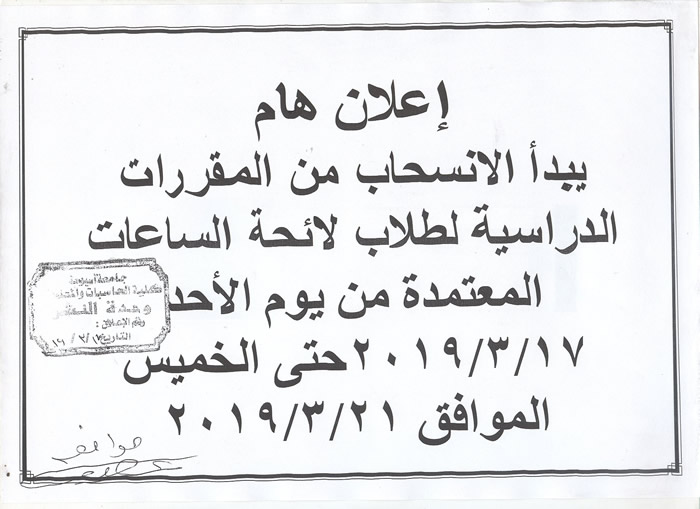 إعلان هام
يبدأ الانسحاب من المقررات
الدراسية لطلاب لائحة الساعات
المعتمدة من يوم الأحد
٢٠١٩/٣/١٧حتى الخميس
الموافق ٢٠١٩/٣/٢١
جامعة أسيوط
كلية الحاسبات
وحدة النشر
رقم الإعلان :
التاريخ